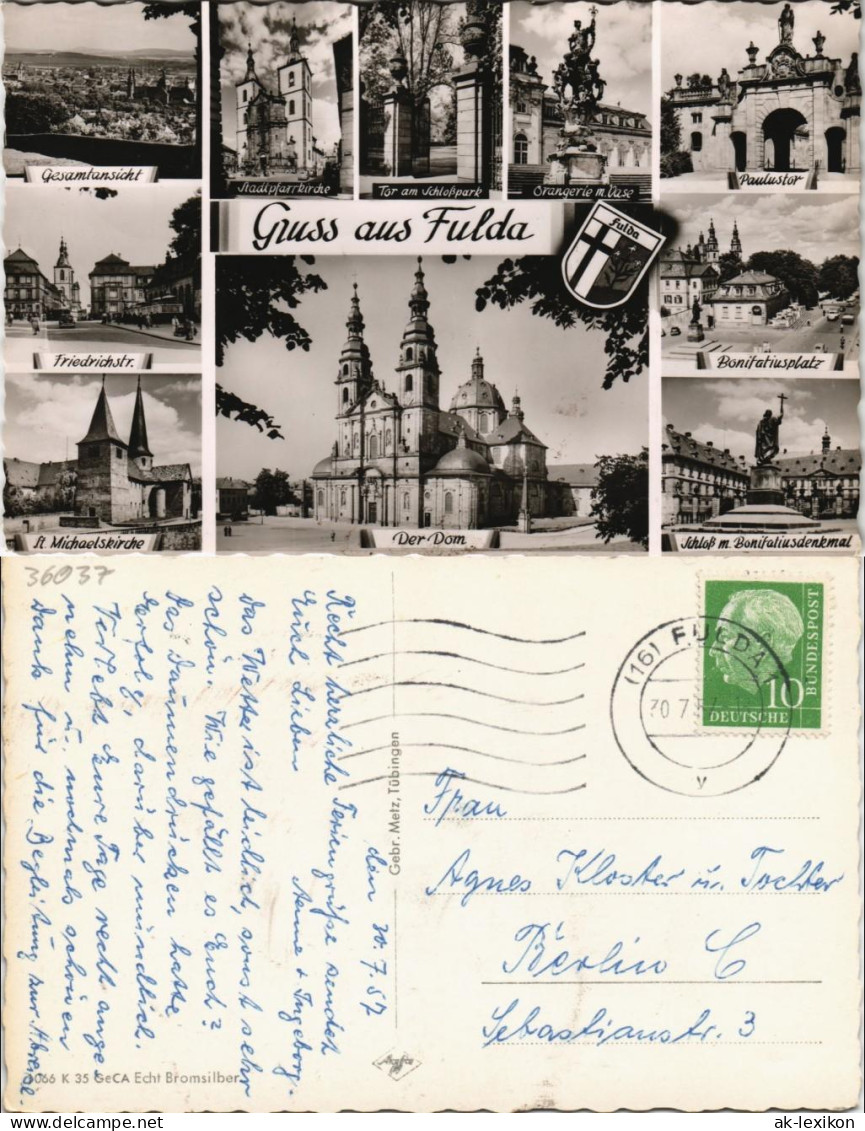 Gesamtansicht
Stadtpfarrkirche
Tor am Schloßpark
Orangerie m. Vase
Paulustor
Gruss aus Fulda
Fulda
Friedrichstr.
Bonifatiusplatz
St. Michaelskirche
Der Dom
Schloß m. Bonifatiusdenkmal
36037
den 30.7.57
Recht herzliche Feriengrüße sendet
Euch Lieben Aenne + Ingeborg.
Das Wetter ist leidlich, sonst sehr
schön. Wie gefällt es Euch?
Das Daumendrücken hatte
Erfolg, darüber mündlich.
Verlebt Eure Tage recht ange-
nehm u. nochmals schönen
Dank für die Begleitung zur Abreise.
Gebr. Metz, Tübingen
(16) FULDA 1
30.7.57
y
10
DEUTSCHE
BUNDESPOST
Frau
Agnes Kloster u. Tochter
Berlin C
Sebastianstr. 3
Agfa
1066 K 35 GeCA Echt Bromsilber
www.ak-ansichtskarten.de
ak-lexikon